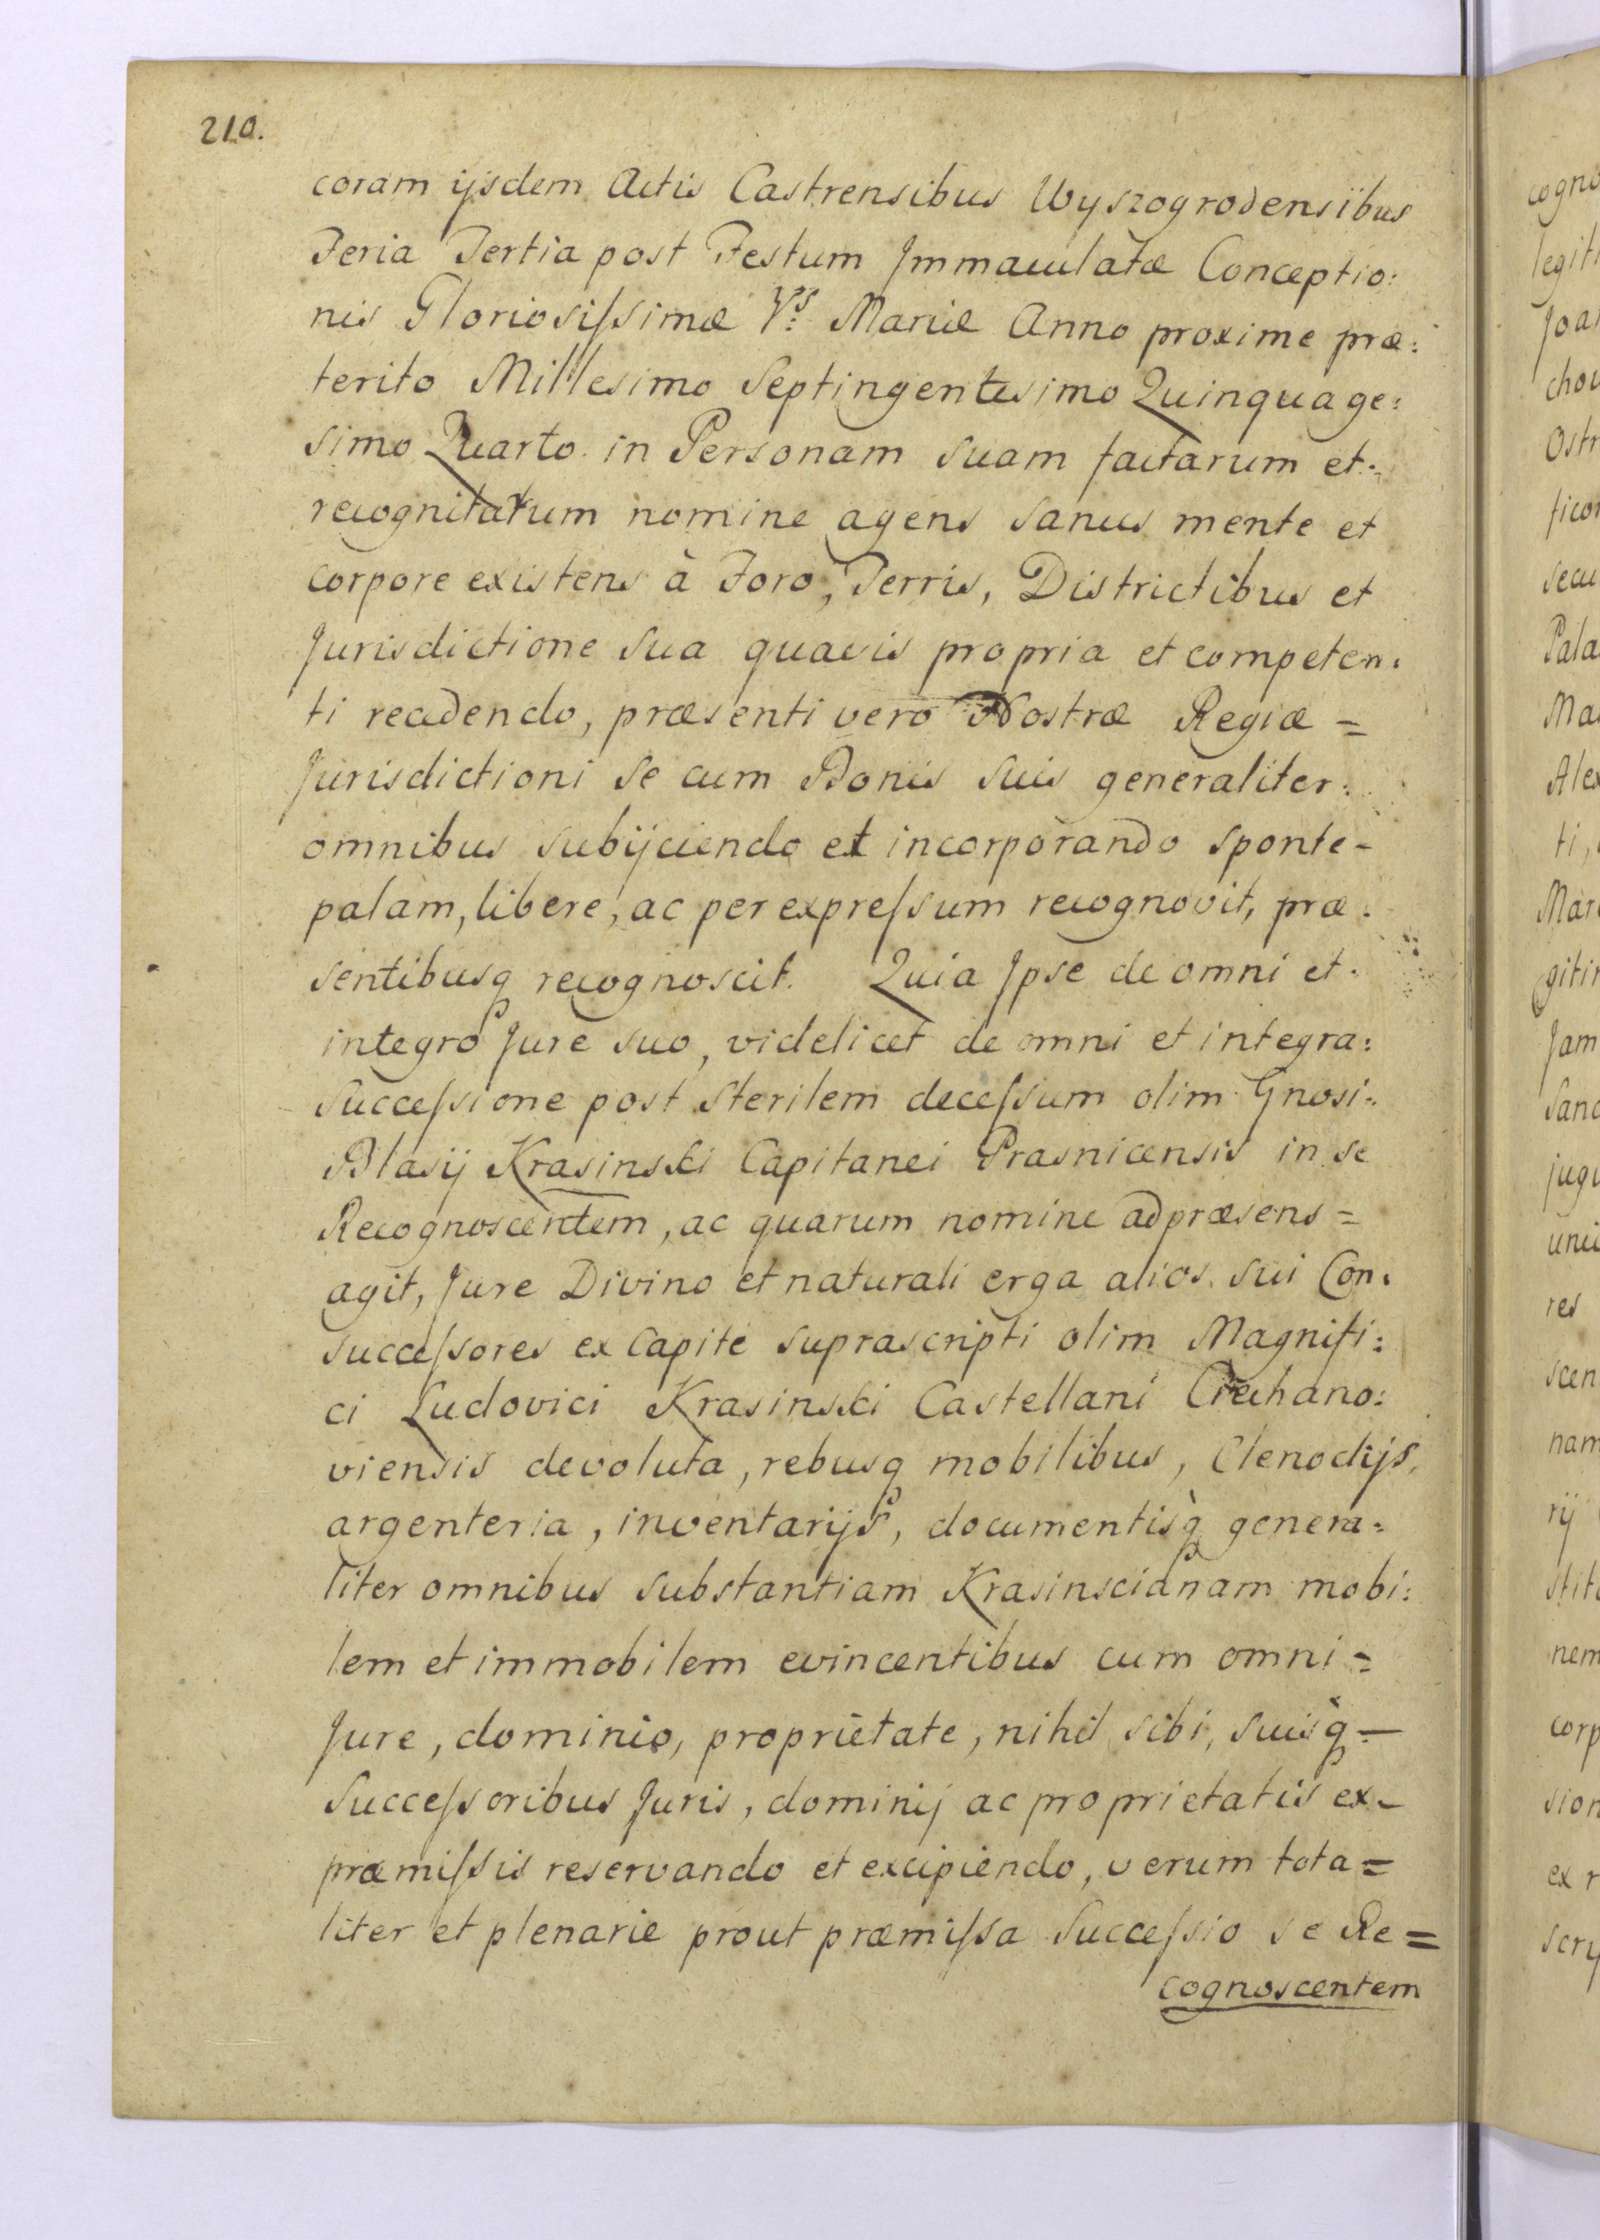 210.
coram ijsdem Actis Castrensibus Wyszogrodensibus
Feria Tertia post Festum Immaculatæ Conceptio:
nis Gloriosissimæ Vs: Mariæ Anno proxime præ:
terito Millesimo Septingentesimo Quinquage:
simo Quarto in Personam suam factarum et
recognitarum nomine agens sanus mente et
corpore existens à Foro, Terris, Districtibus et
Jurisdictione sua quavis propria et competen:
ti recedendo, præsenti vero Nostræ Regiæ =
Jurisdictioni se cum Bonis suis generaliter:
omnibus subijciendo et incorporando sponte-
palam, libere, ac per expressum recognovit, præ:
sentibusq recognoscit. Quia Ipse de omni et
integro Jure suo, videlicet de omni et integra:
Successione post sterilem decessum olim Gnosi:
Blasij Krasinski Capitanei Prasnicensis in se
Recognoscentem, ac quarum nomine ad præsens =
agit, Jure Divino et naturali erga alios sui Con:
successores ex Capite suprascripti olim Magnifi:
ci Ludovici Krasinski Castellani Ciechano:
viensis devoluta, rebusq mobilibus, Clenodijs,
argenteria, inventarijs, documentisq genera:
liter omnibus substantiam Krasinscianam mobi:
lem et immobilem evincentibus cum omni =
Jure, dominio, proprietate, nihil sibi, suisq -
Successoribus Juris, dominij ac proprietatis ex-
præmissis reservando et excipiendo, verum tota =
liter et plenarie prout præmissa Successio se Re =
cognoscentem
cogno
legit
Joa
chou
Ostr
ficor
secu
Pala
Ma
Alex
ti,
Mar
gitin
Jam
Sanc
jugu
res
scen
nam
rij
stit
nem
corp
sion
ex r